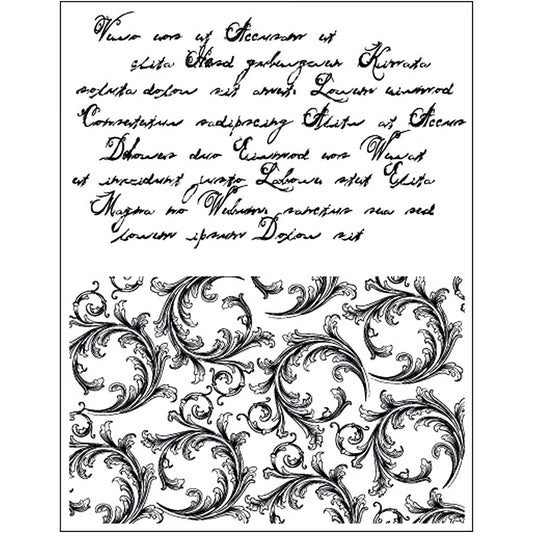 Vero eos et Accusam et
elita Stead gubergren Kimata
soluta dolor sit amet. Lorem eiusmod
Consetetur sadipscing Alitu at Accus
Dolores duo Eiusmod eos Verat
et incidunt justo Labore stet Elita
Magna no Verum, sanctus sea sed
lorem ipsum Dolor sit